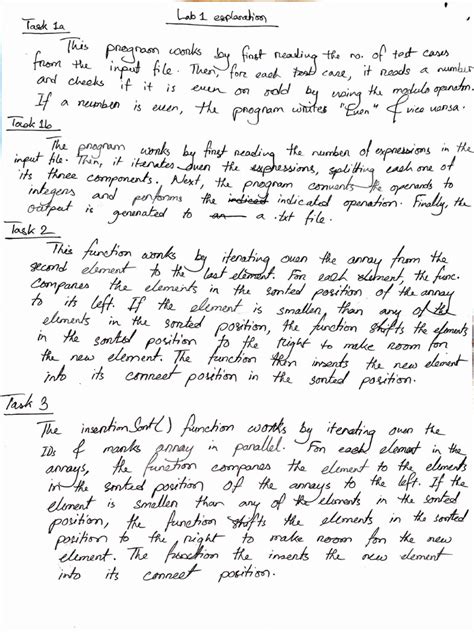 Lab 1 explanation
Task 1a
This program works by first reading the no. of test cases
from the input file. Then, for each test case, it reads a number
and checks if it is even or odd by using the modulo operator.
If a number is even, the program writes "Even" & vice versa.
Task 1b
The program works by first reading the number of expressions in the
input file. Then, it iterates over the expressions, splitting each one of
its three components. Next, the program converts the operands to
integers and performs the indicated operation. Finally, the
output is generated to a .txt file.
Task 2
This function works by iterating over the array from the
second element to the last element. For each element, the func.
compares the elements in the sorted position of the array
to its left. If the element is smaller than any of the
elements in the sorted position, the function shifts the elements
in the sorted position to the right to make room for
the new element. The function then inserts the new element
into its correct position in the sorted position.
Task 3
The insertionSort() function works by iterating over the
IDs & marks array in parallel. For each element in the
arrays, the function compares the element to the elements
in the sorted position of the arrays to the left. If the
element is smaller than any of the elements in the sorted
position, the function shifts the elements in the sorted
position to the right to make room for the new
element. The function the inserts the new element
into its correct position.